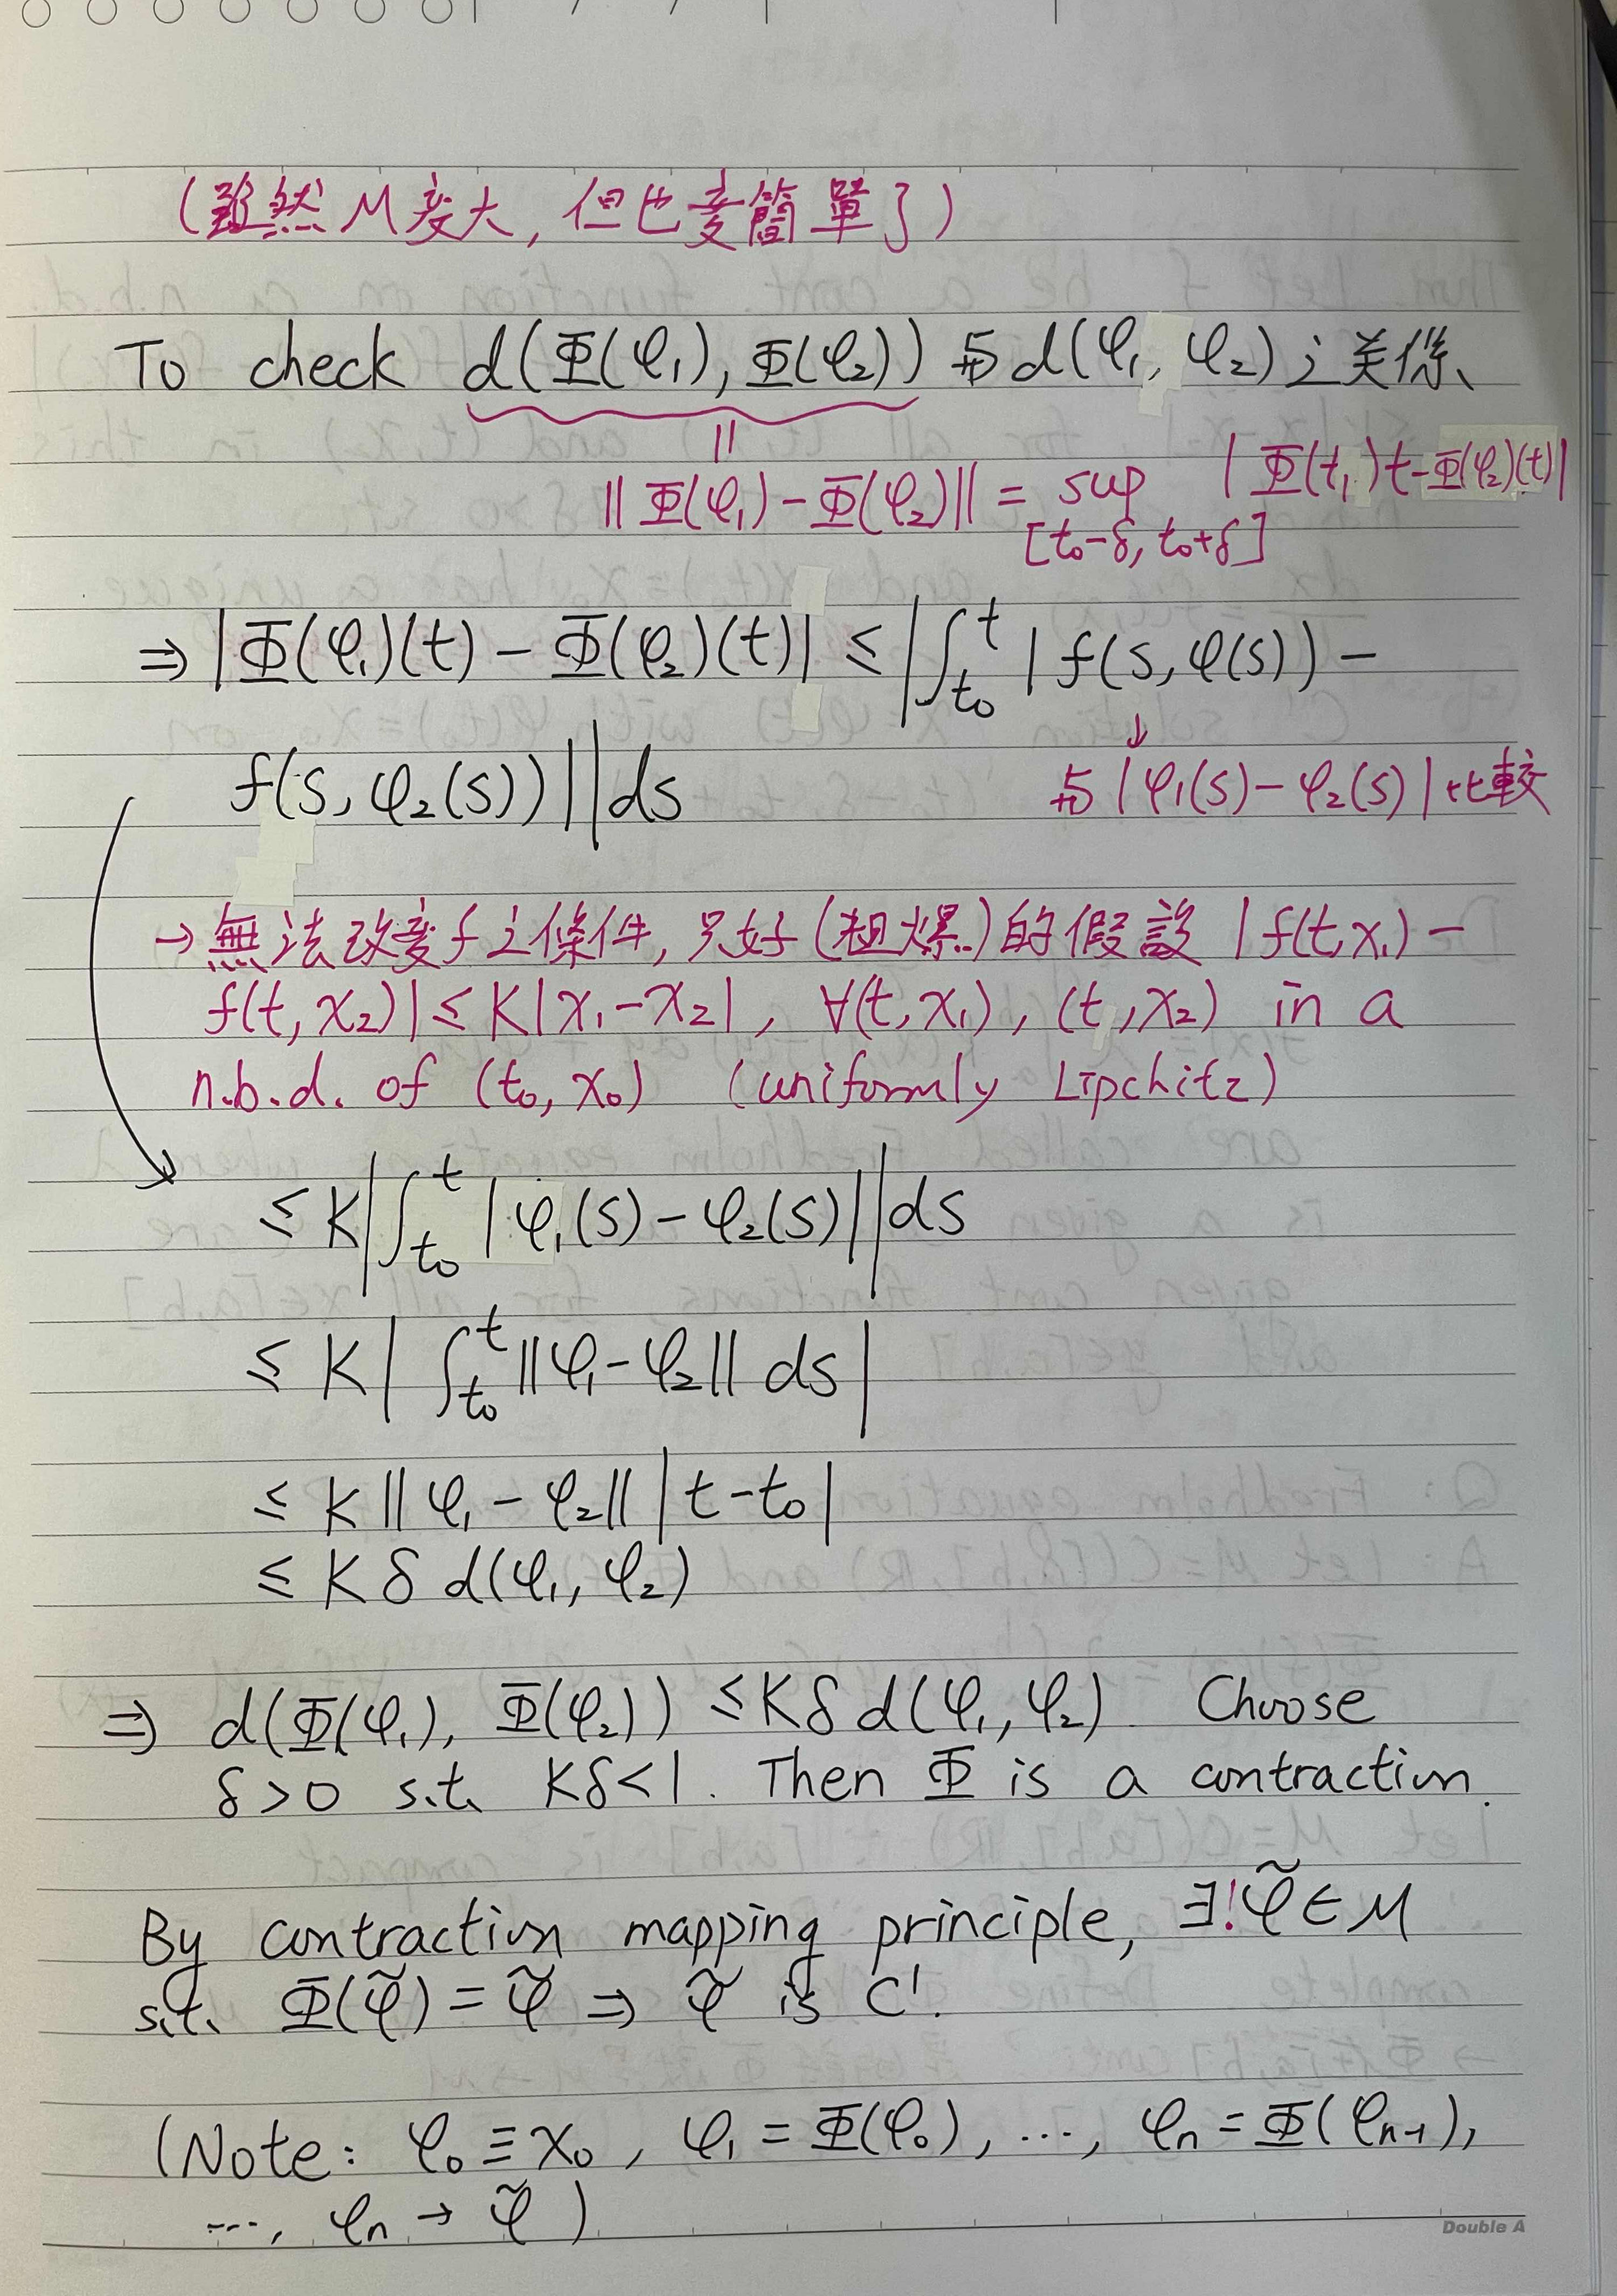 (雖然 M変大, 但也変簡單了)
To check d(Φ(φ₁), Φ(φ₂)) 与 d(φ₁, φ₂) 之关係、
||
‖Φ(φ₁)-Φ(φ₂)‖ = sup |Φ(t₁)t-Φ(φ₂)(t)|
[t₀-δ, t₀+δ]
⇒ |Φ(φ₁)(t) - Φ(φ₂)(t)| ≤ |∫_{t₀}^{t} | f(s, φ(s)) -
f(s, φ₂(s))||ds
↓
与 |φ₁(s) - φ₂(s)| 比較
→ 無法改変f之條件, 只好(粗爆)的假設 | f(t, x₁) -
f(t, x₂)| ≤ K|x₁-x₂|, ∀(t, x₁), (t, x₂) in a
n.b.d. of (t₀, x₀) (uniformly Lipchitz)
≤ K|∫_{t₀}^{t} |φ₁(s) - φ₂(s)||ds
≤ K| ∫_{t₀}^{t} ‖φ₁-φ₂‖ ds|
≤ K‖φ₁ - φ₂‖|t-t₀|
≤ K δ d(φ₁, φ₂)
⇒ d(Φ(φ₁), Φ(φ₂)) ≤Kδ d(φ₁, φ₂). Choose
δ>0 s.t. Kδ<1. Then Φ is a contraction.
By contraction mapping principle, ∃!φ̃ ∈ M
s.t. Φ(φ̃) = φ̃ ⇒ φ̃ is C¹.
(Note: φ₀ ≡ x₀, φ₁ = Φ(φ₀), ⋯, φₙ = Φ(φₙ₋₁),
⋯, φₙ → φ̃ )
Double A